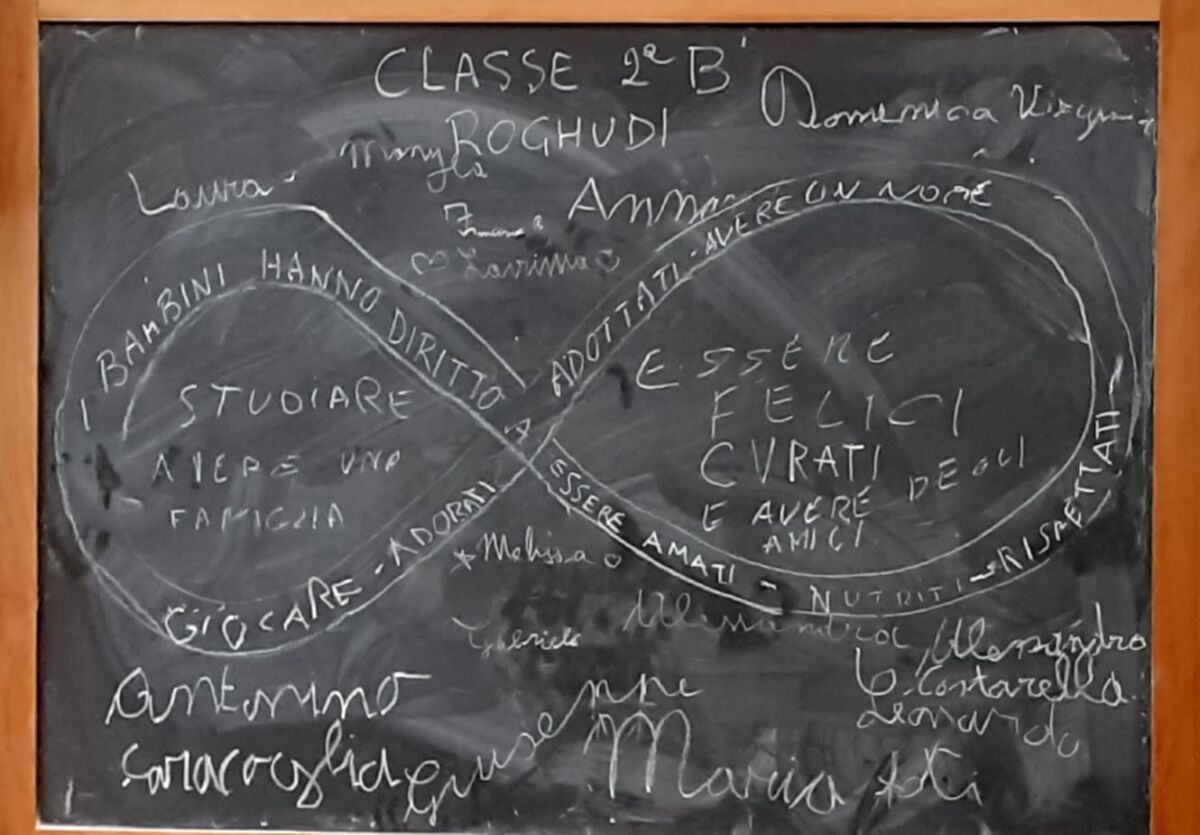 CLASSE 2ª B
ROGHUDI
Domenica
Laura
Anna
I BAMBINI HANNO DIRITTO A
ESSERE AMATI - NUTRITI - RISPETTATI -
ADOTTATI - AVERE UN NOME
GIOCARE - ADORATI
STUDIARE
AVERE UNA
FAMIGLIA
ESSERE
FELICI
CURATI
E AVERE DEGLI
AMICI
Melissa
Gabriele
Alessandro
C. Costarella
Leonardo
Antonino
Giuseppe
Maria